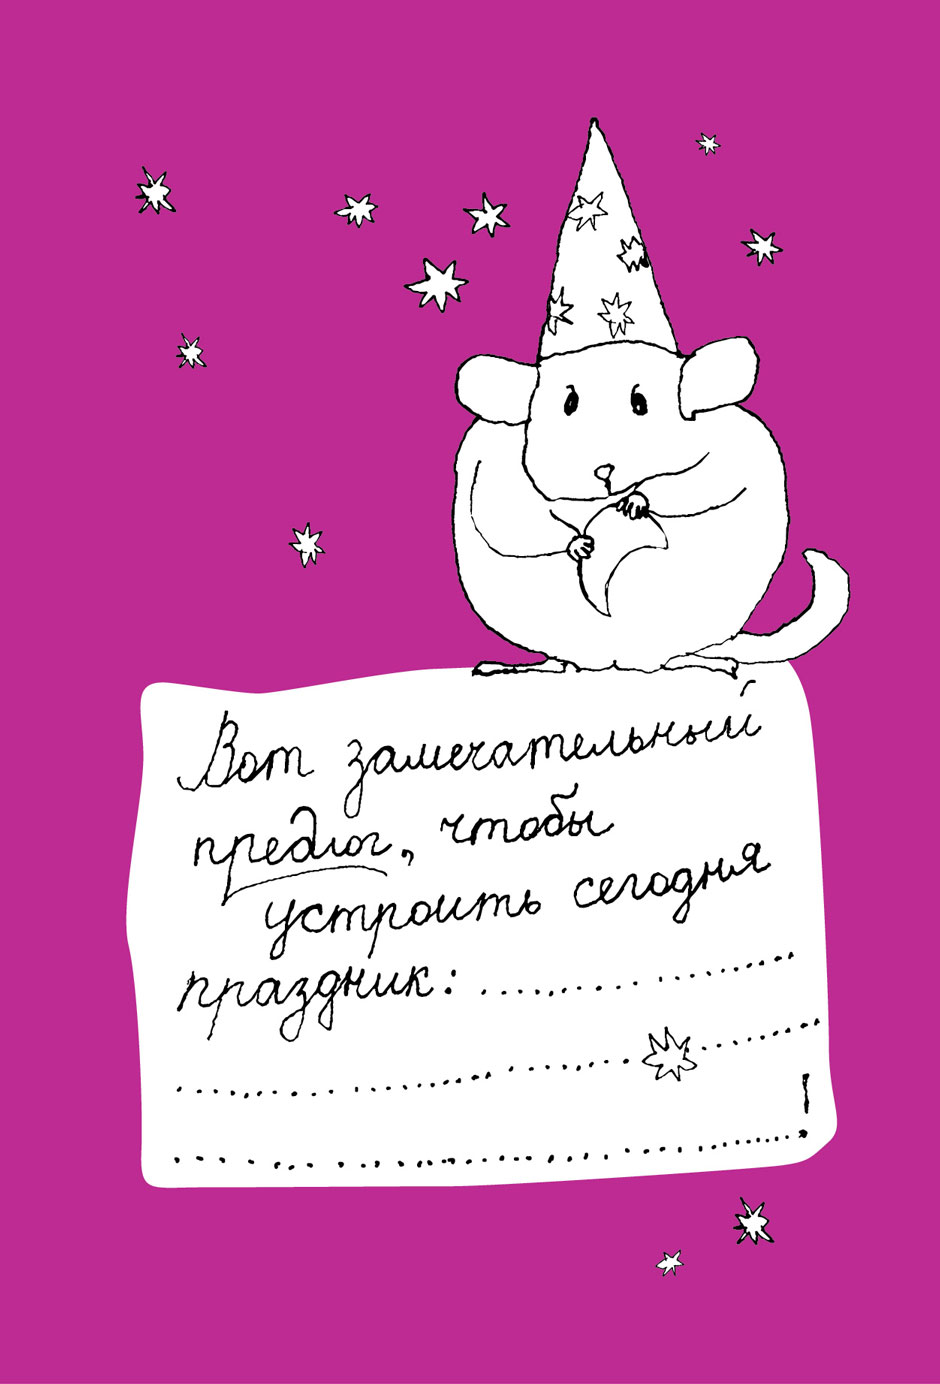 Вот замечательный
предлог, чтобы
устроить сегодня
праздник: ..............................
............................................................
............................................................!